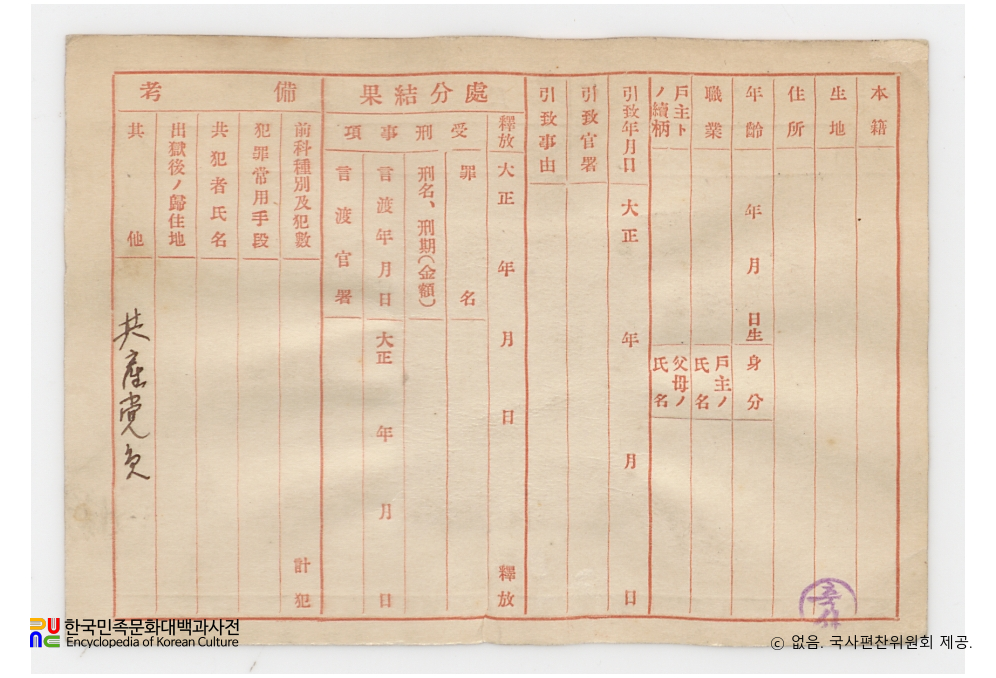 本籍
生地
住所
年齡 年 月 日生
身分
職業
戶主ノ氏名
戶主トノ續柄
父母ノ氏名
引致年月日 大正 年 月 日
引致官署
引致事由
處分結果
釋放 大正 年 月 日 釋放
受刑事項
罪名
刑名、刑期(金額)
言渡年月日 大正 年 月 日
言渡官署
備考
前科種別及犯數 計 犯
犯罪常用手段
共犯者氏名
出獄後ノ歸住地
其他 共産党員
한국민족문화대백과사전
Encyclopedia of Korean Culture
ⓒ 없음. 국사편찬위원회 제공.